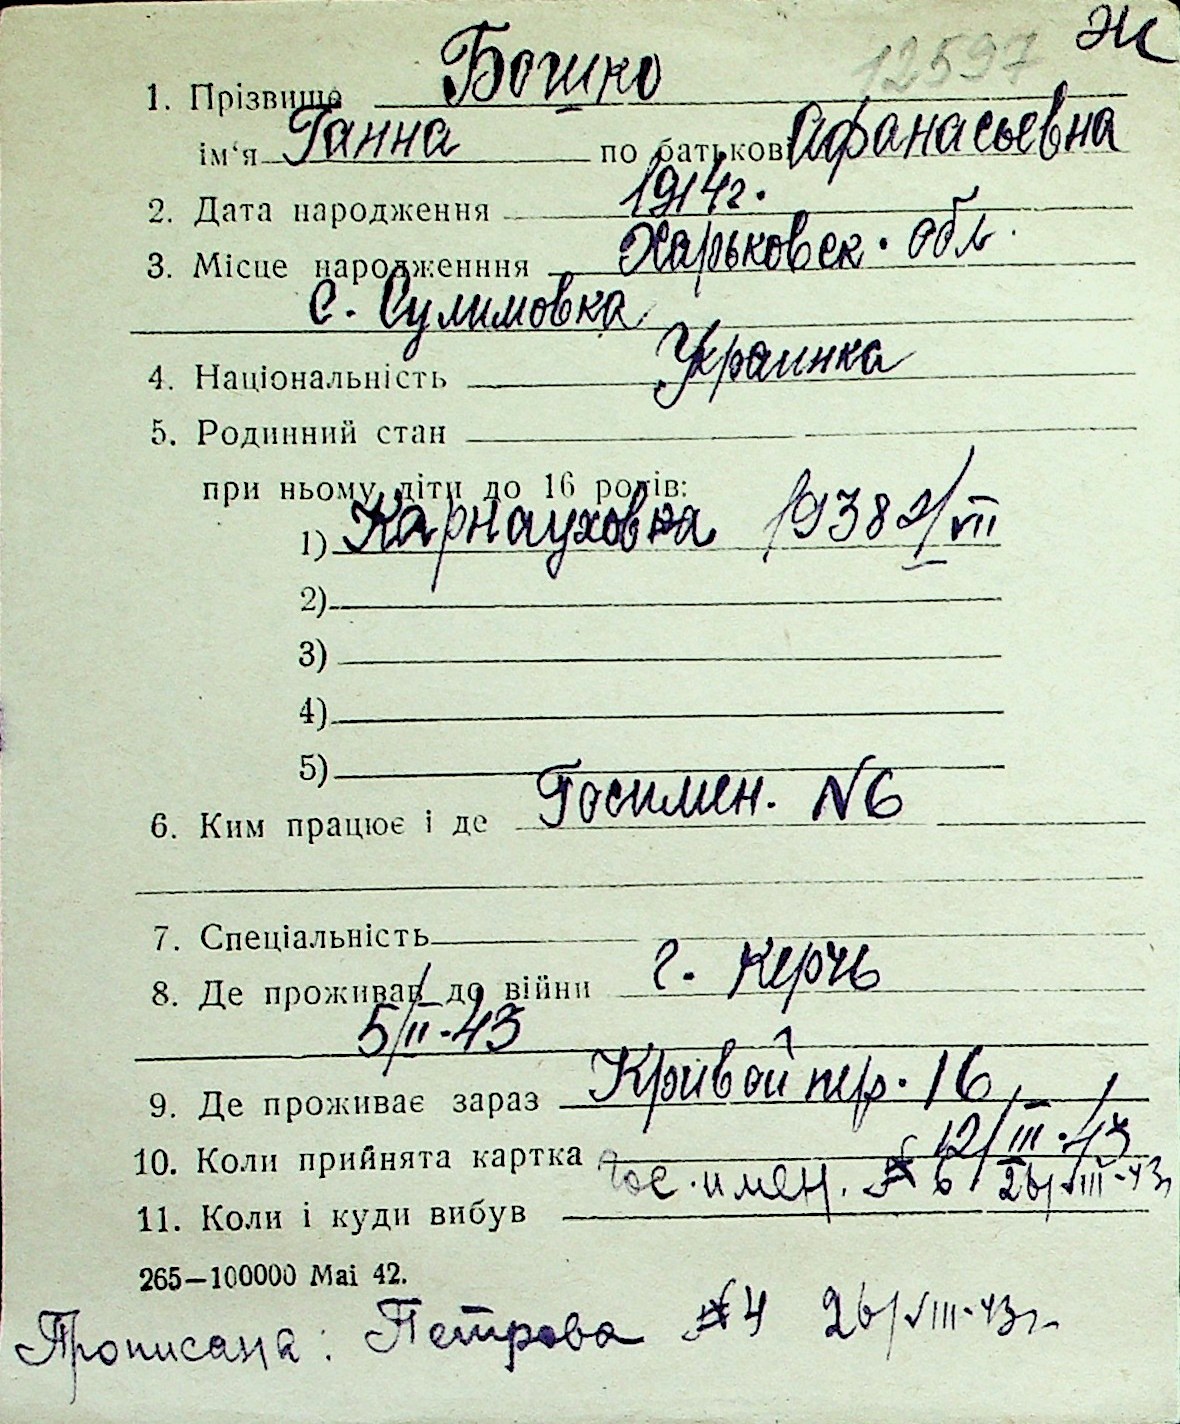 12597 Ж
1. Прізвище Бошко
ім'я Ганна по батькові Афанасьевна
2. Дата народження 1914г.
3. Місце народженння Харьковск. обл.
с. Сулимовка
4. Національність Украинка
5. Родинний стан
при ньому діти до 16 років:
1) Карнауховка 1938 2/VII
2)
3)
4)
5)
6. Ким працює і де Госимен. N6
7. Спеціальність
8. Де проживав до війни г. Керчь
5/II-43
9. Де проживає зараз Кривой пер. 16
10. Коли прийнята картка 12/III-43
гос. имен. № 6 26/VIII-43г
11. Коли і куди вибув
265—100000 Mai 42.
Прописана: Петрова №4 26/VIII-43г